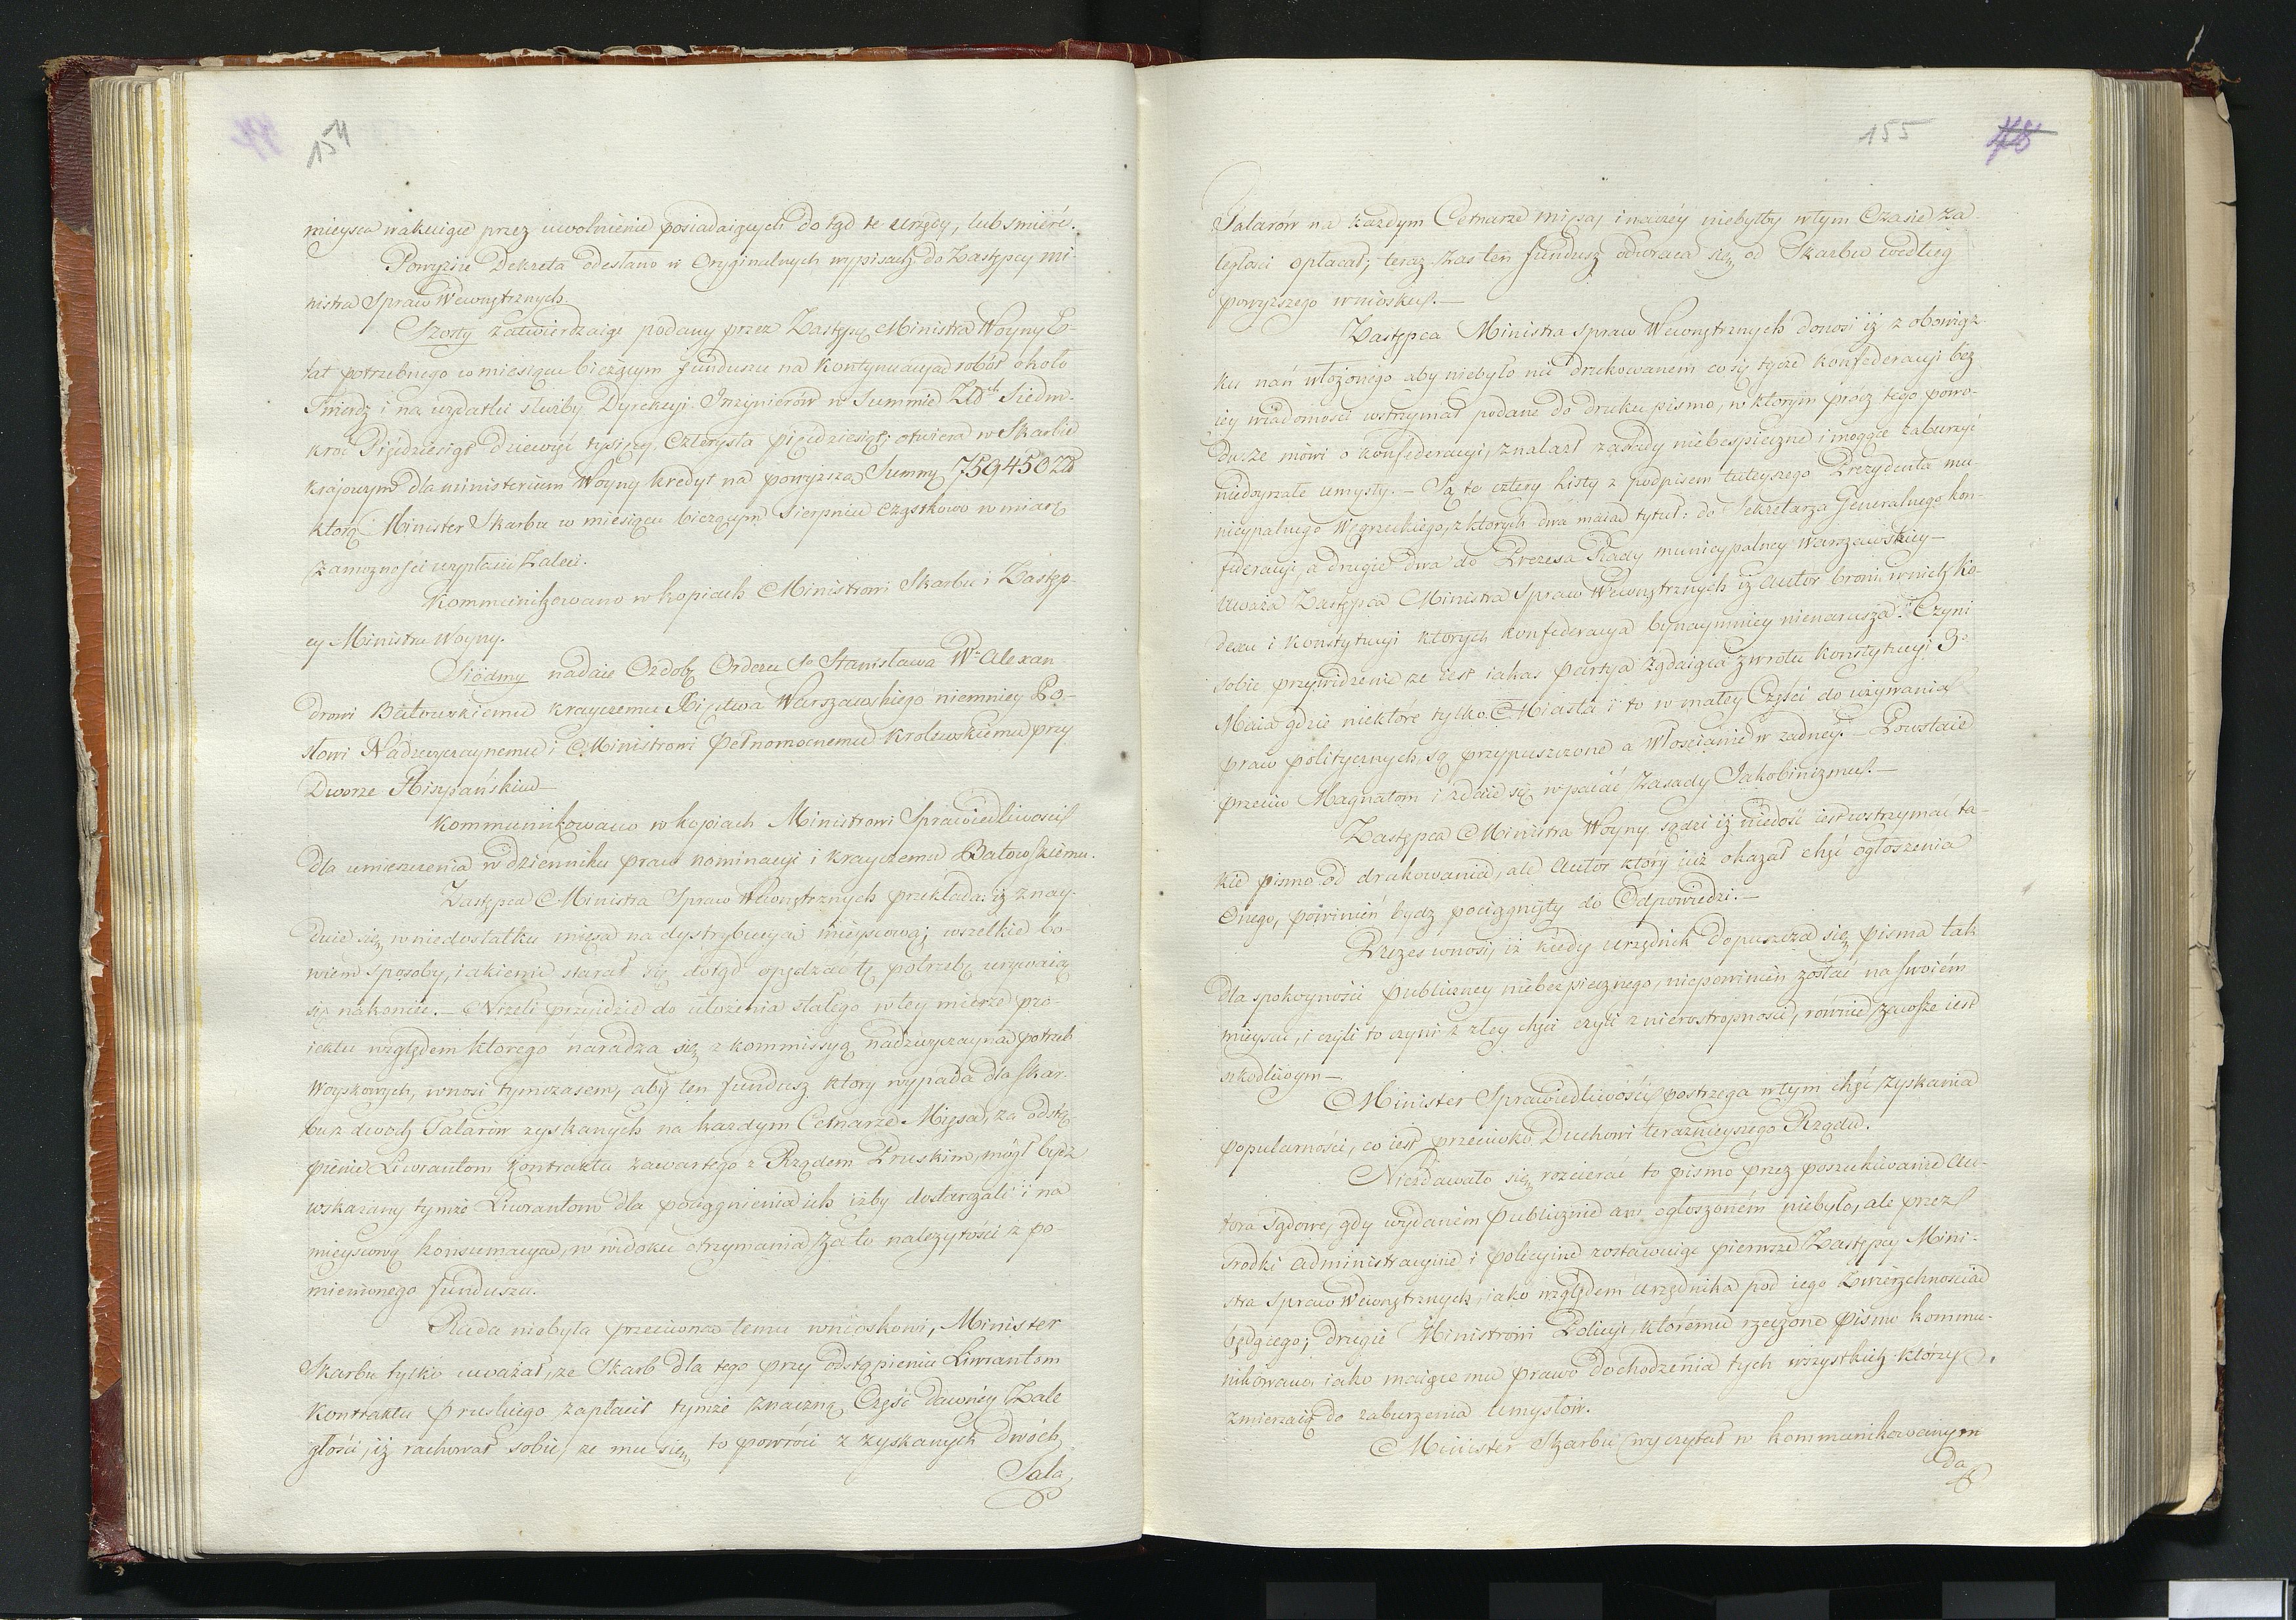 154
mieysca wakuiące przez uwolnienie posiadaiących do tąd te urzędy, lub śmierć.
Powyższe Dekreta odesłano w Oryginalnych wypisach do Zastępcy Mi-
nistra Spraw Wewnętrznych.
Szósty zatwierdzaiąc podany przez Zastępcę Ministra Woyny E-
tat potrzebnego w miesiącu bieżącym funduszu na kontynuacyą robót około
Twierdz i na wydatki służby Dyrekcyi Inżynierów w Summie Złch Siedm-
kroć Pięćdziesiąt dziewięć tysięcy Czterysta pięćdziesiąt, otwiera w Skarbie
kraiowym dla ministerium Woyny kredyt na powyższą Summę 759450 Zł
którą Minister Skarbu w miesiącu bieżącym Sierpniu cząstkowo w miarę
zamożności wypłacić zaleci.
Kommunikowano w kopiach Ministrowi Skarbu i Zastęp-
cy Ministra Woyny.
Siódmy nadaie Ozdobę Orderu So Stanisława Wu Alexan
drowi Batowskiemu krayczemu Xięstwa Warszawskiego niemniey Po-
słowi Nadzwyczaynemu i Ministrowi Pełnomocnemu Krolewskiemu przy
Dworze Hiszpańskim—
Kommunikowano w kopiach Ministrowi Sprawiedliwości
dla umieszczenia w dzienniku praw nominacyi i krayczemu Batowskiemu.
Zastępca Ministra Spraw Wewnętrznych przekłada: iż znay-
duie się w niedostatku mięsa na dystrybucyą mieyscową; wszelkie bo-
wiem sposoby, iakiemi starał się dotąd opędzać tę potrzebę urywaią
się nakoniec.— Niżeli przyidzie do ułożenia stałego w tey mierze pro-
iektu względem ktorego naradza się z kommissyą nadzwyczayną potrzeb
Woyskowych, wnosi tymczasem, aby ten fundusz który wypada dla Skar-
bu z dwóch Talarów zyskanych na każdym Cetnarze Mięsa, za odstą
pienie Liwrantom kontraktu zawartego z Rządem Pruskim, mógł bydź
wskazany tymże Liwrantom dla pociągnienia ich iżby dostarczali i na
mieyscową konsumacyą, w widoku otrzymania za to należytości z po
mienionego funduszu.
Rada niebyła przeciwna temu wnioskowi, Minister
Skarbu tylko uważał, że Skarb dla tego przy odstąpieniu Liwrantom
Kontraktu Pruskiego zapłacił tymże znaczną Część dawnéy Zale
głości, iż rachował sobie, że mu się to powróci z zyskanych dwóch
Tala
155
48
Talarów na każdym Cetnarze mięsa, i inaczéy niebyłby w tym Czasie Za-
ległości opłacał; teraz zaś ten fundusz odwraca się od Skarbu według
powyższego wniosku.—
Zastępca Ministra Spraw Wewnętrznych donosi iż z obowiąz-
ku nań włożonego aby niebyło nic drukowanem co się tycze konfederacyi bez
iey wiadomości wstrzymał podane do druku pismo, w którym prócz tego powo-
du że mówi o konfederacyi, znalazł zasady niebespieczne i mogące zaburzyć
niedoyrzałe umysły.— Są to cztery Listy z podpisem tuteyszego Prezydenta mu-
nicypalnego Węgrzeckiego, z których dwa maią tytuł: do Sekretarza Generalnego kon-
federacyi, a drugie dwa do Prezesa Rady municypalney Warszawskiey—
Uważa Zastępca Ministra Spraw Wewnętrznych iż Autor broni w nich Ko-
dexu i Konstytucyi których konfederacya bynaymniey nienarusza. Czyni
sobie przywidzenie że iest iakaś partya żądaiąca zwrotu Konstytucyi 3o
Maia gdzie niektóre tylko Miasta i to w małey Części do używania
praw politycznych, są przypuszczone a Włościanie w żadney.— Powstaie
przeciw Magnatom i zdaie się wpaiać zasady Jakobinizmu.—
Zastępca Ministra Woyny sądzi iż niedość iest wstrzymać ta-
kie pismo od drukowania, ale Autor który iuż okazał chęć ogłoszenia
Onego, powinien bydz pociągnięty do Odpowiedzi.—
Prezes wnosi, iż kiedy urzędnik dopuszcza się pisma tak
dla spokoyności publiczney niebezpiecznego, niepowinien zostać na swoiém
mieyscu, i czyli to czyni z złey chęci czyli z nieroztropności, równie zawsze iest
szkodliwym—
Minister Sprawiedliwości postrzega w tym chęć zyskania
popularności, co iest przeciwko Duchowi teraźnieyszego Rządu.
Niezdawało się rozcierać to pismo przez poszukiwanie Au-
tora Sądowe, gdy wydaném publicznie ani ogłoszoném niebyło, ale przez
środki administracyine i policyine zostawuiąc pierwsze Zastępcy Mini-
stra Spraw Wewnętrznych, iako względem Urzędnika pod iego Zwierzchnością
będącego; drugie Ministrowi Policyi, któremu rzeczone pismo kommu-
nikowano iako maiącemu prawo dochodzenia tych wszystkich którzy
zmierzaią do zaburzenia Umysłów.
Minister Skarbu wyczytał w kommunikowanym
da